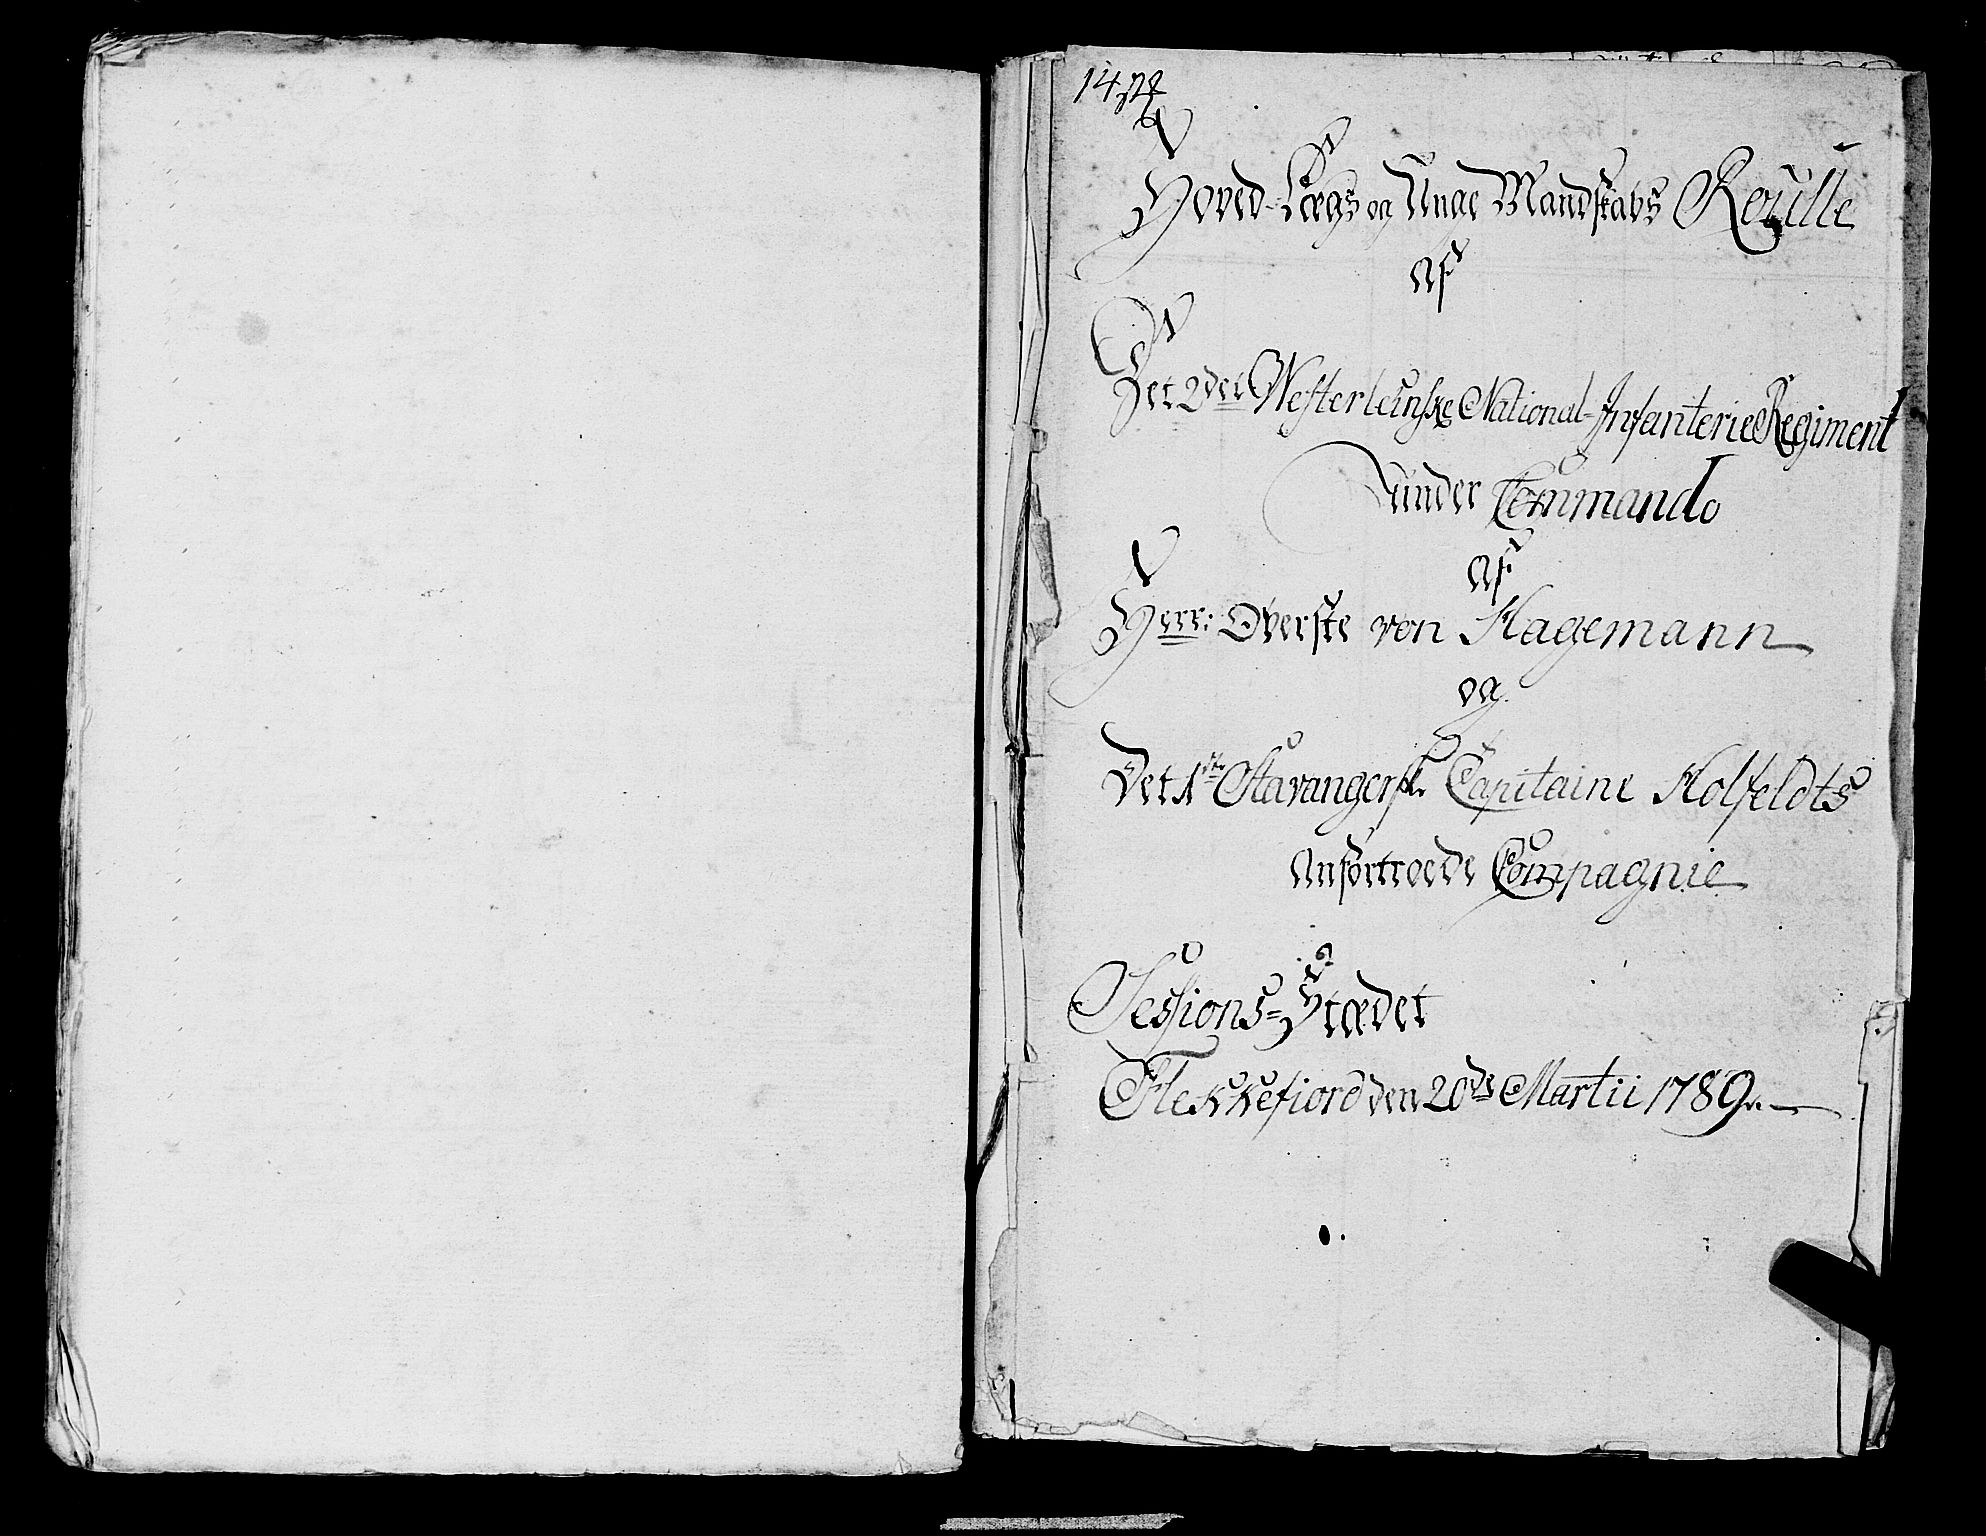 Hoved-Lægs og Unge Mandskabs Roulle
Af
Det 2det Westerleinske National-Infanterie Regiment
under Commando
Af
Herr: Oberste von Hagemann
og
Det 1ste Stavangerske Capitaine Kolfeldts
Anfortroede Compagnie
Sessions-Stædet
Flekkefiord den 20de Martii 1789.